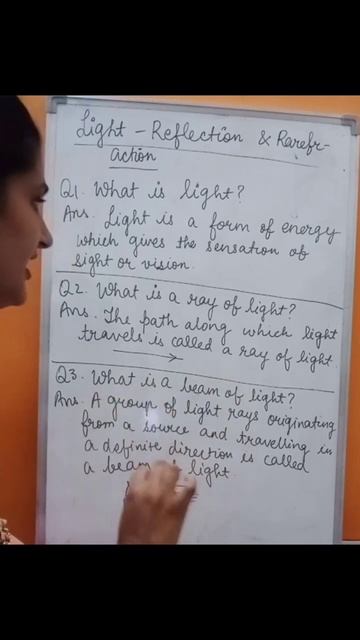 Light - Reflection & Rarefr-
action
Q1. What is light?
Ans. Light is a form of energy
which gives the sensation of
sight or vision.
Q2. What is a ray of light?
Ans. The path along which light
travels is called a ray of light.
Q3. What is a beam of light?
Ans. A group of light rays originating
from a source and travelling in
a definite direction is called
a beam light.